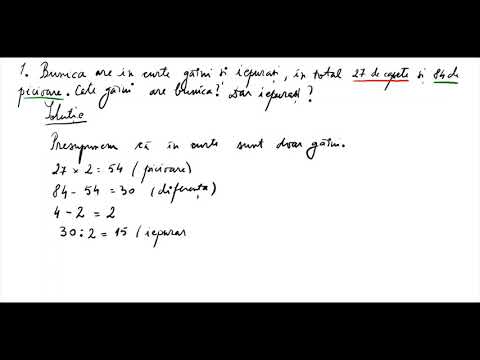 1. Bunica are în curte găini și iepurași, în total 27 de capete și 84 de
picioare. Câte găini are bunica? Dar iepurași?
Soluție
Presupunem că în curte sunt doar găini.
27 × 2 = 54 (picioare)
84 - 54 = 30 (diferența)
4 - 2 = 2
30 : 2 = 15 (iepurar